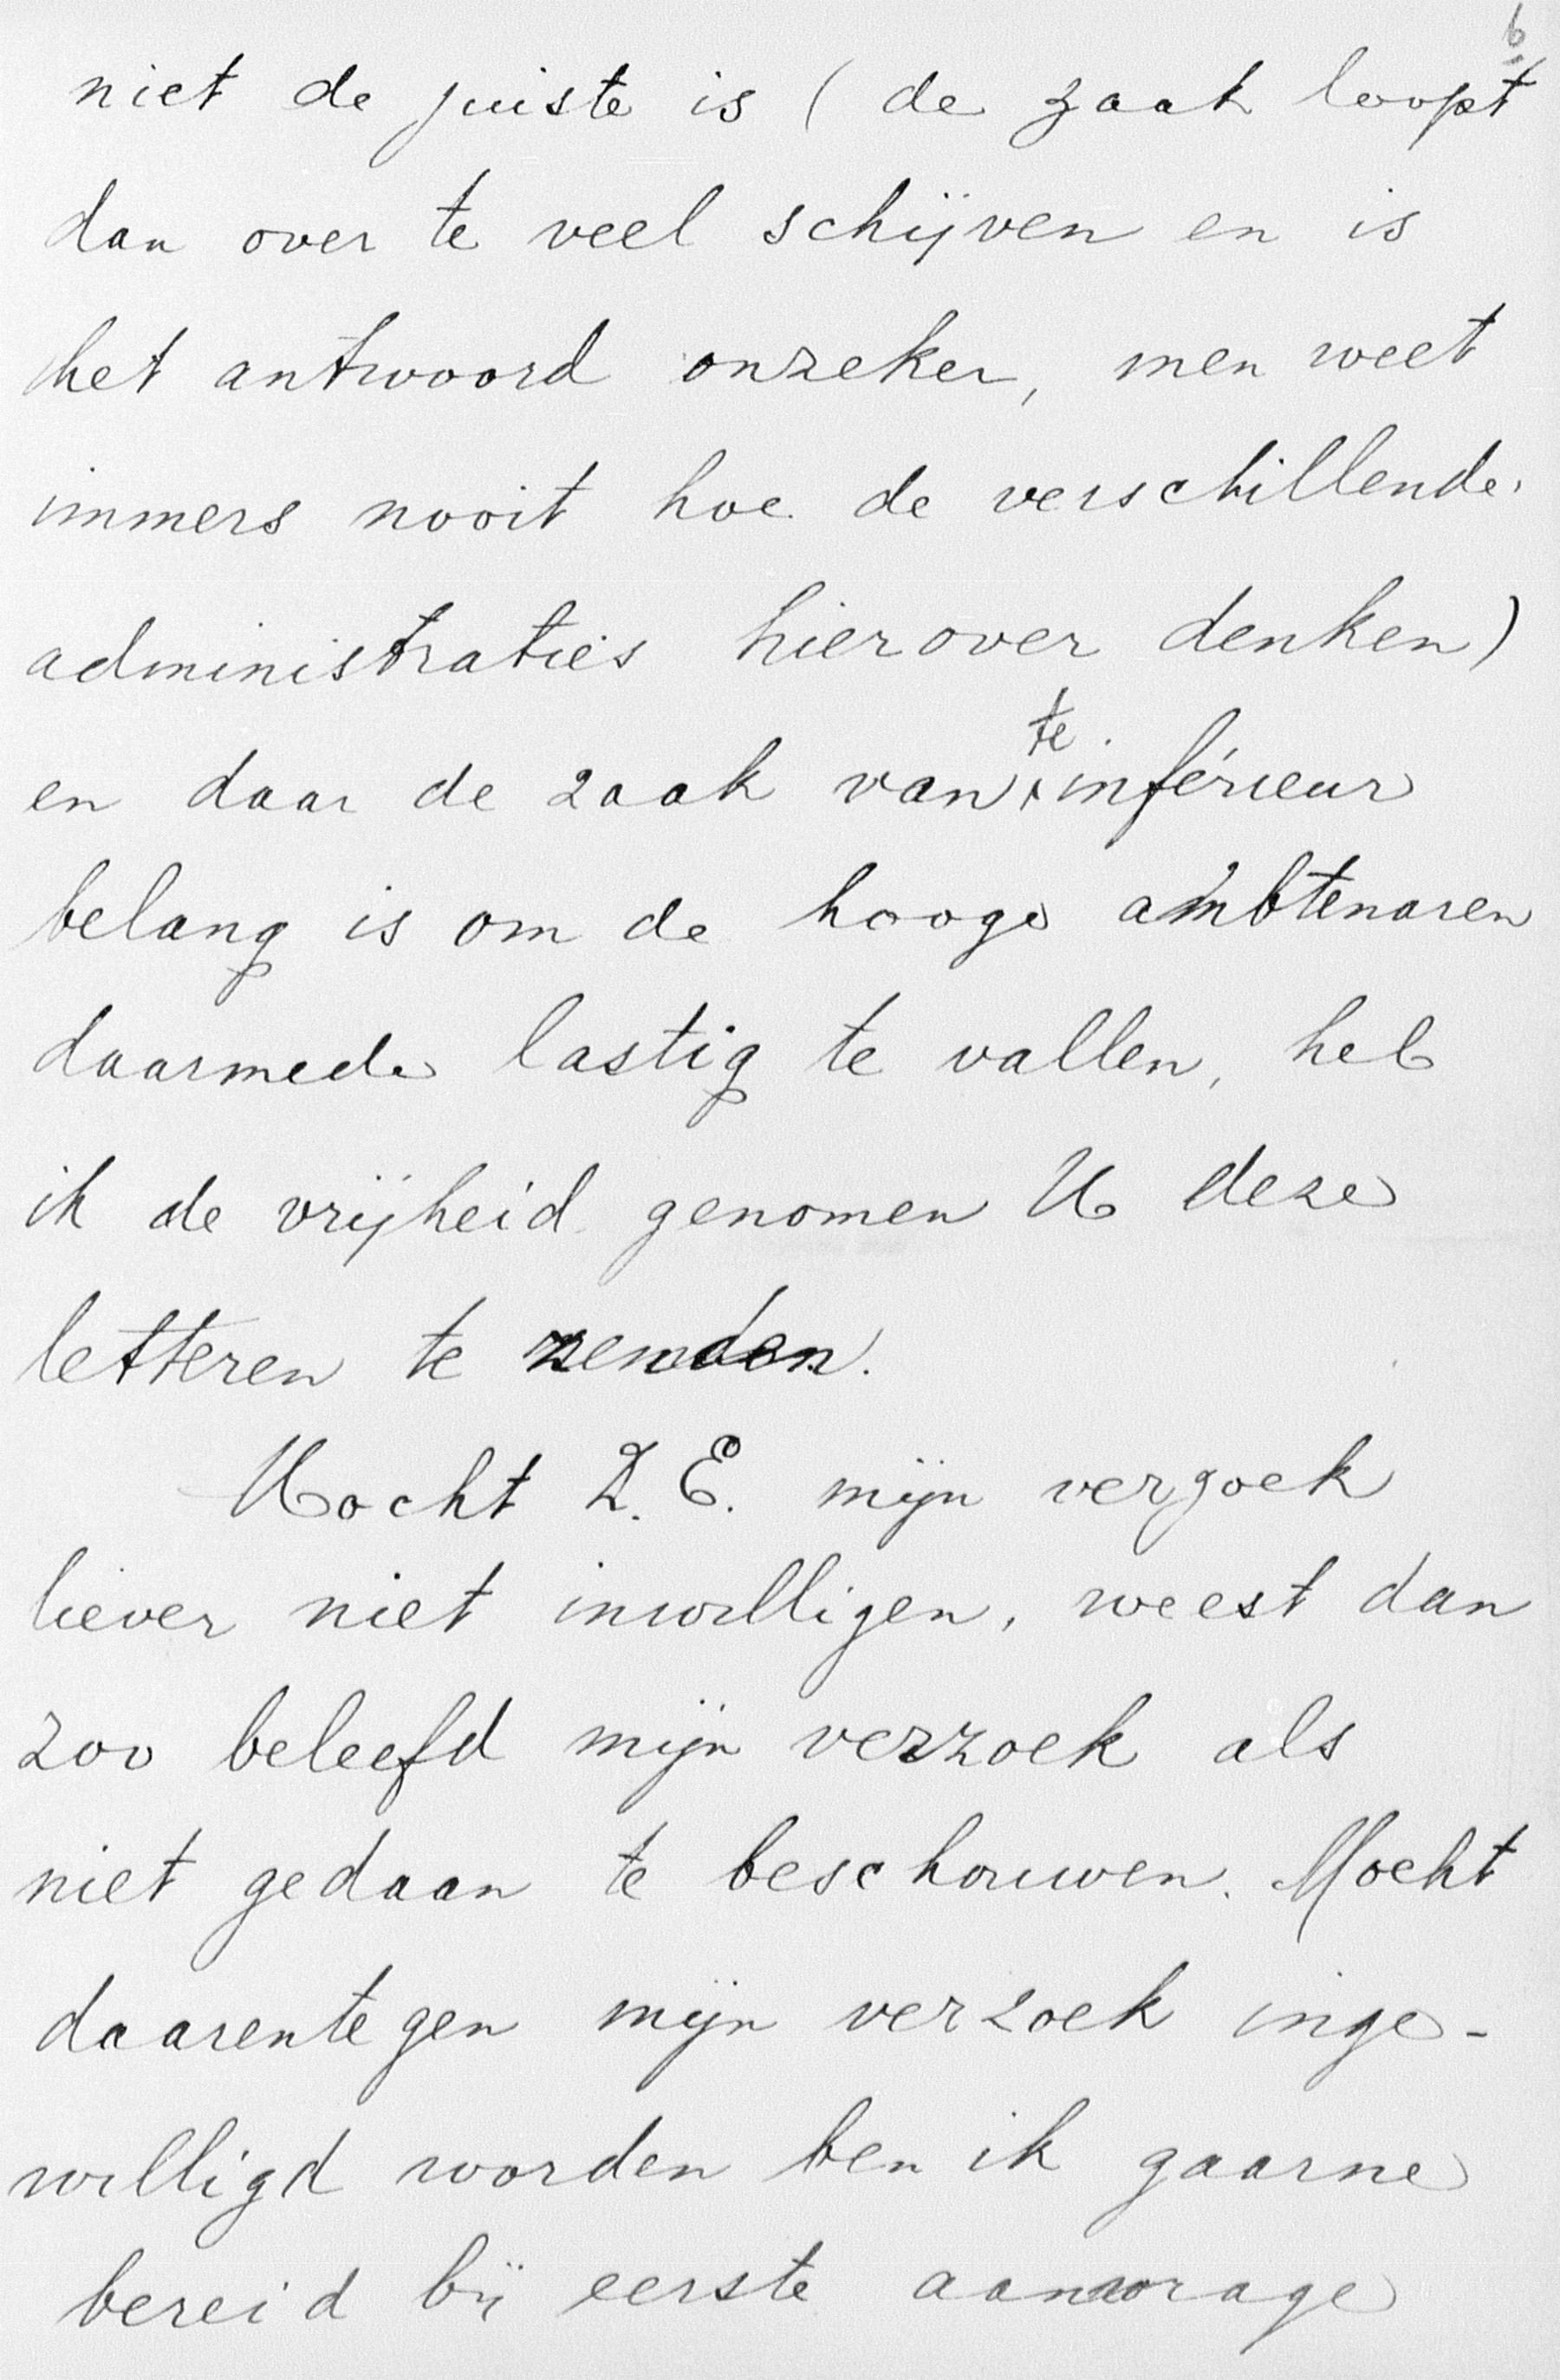 6
niet de juiste is (de zaak loopt
dan over te veel schijven en is
het antwoord onzeker, men weet
immers nooit hoe de verschillende
administratiës hierover denken)
en daar de zaak van te inférieur
belang is om de hooge ambtenaren
daarmede lastig te vallen, heb
ik de vrijheid genomen U deze
letteren te zenden.
Mocht Z. E. mijn verzoek
liever niet inwilligen, weest dan
zoo beleefd mijn verzoek als
niet gedaan te beschouwen. Mocht
daarentegen mijn verzoek inge-
willigd worden ben ik gaarne
bereid bij eerste aanvrage